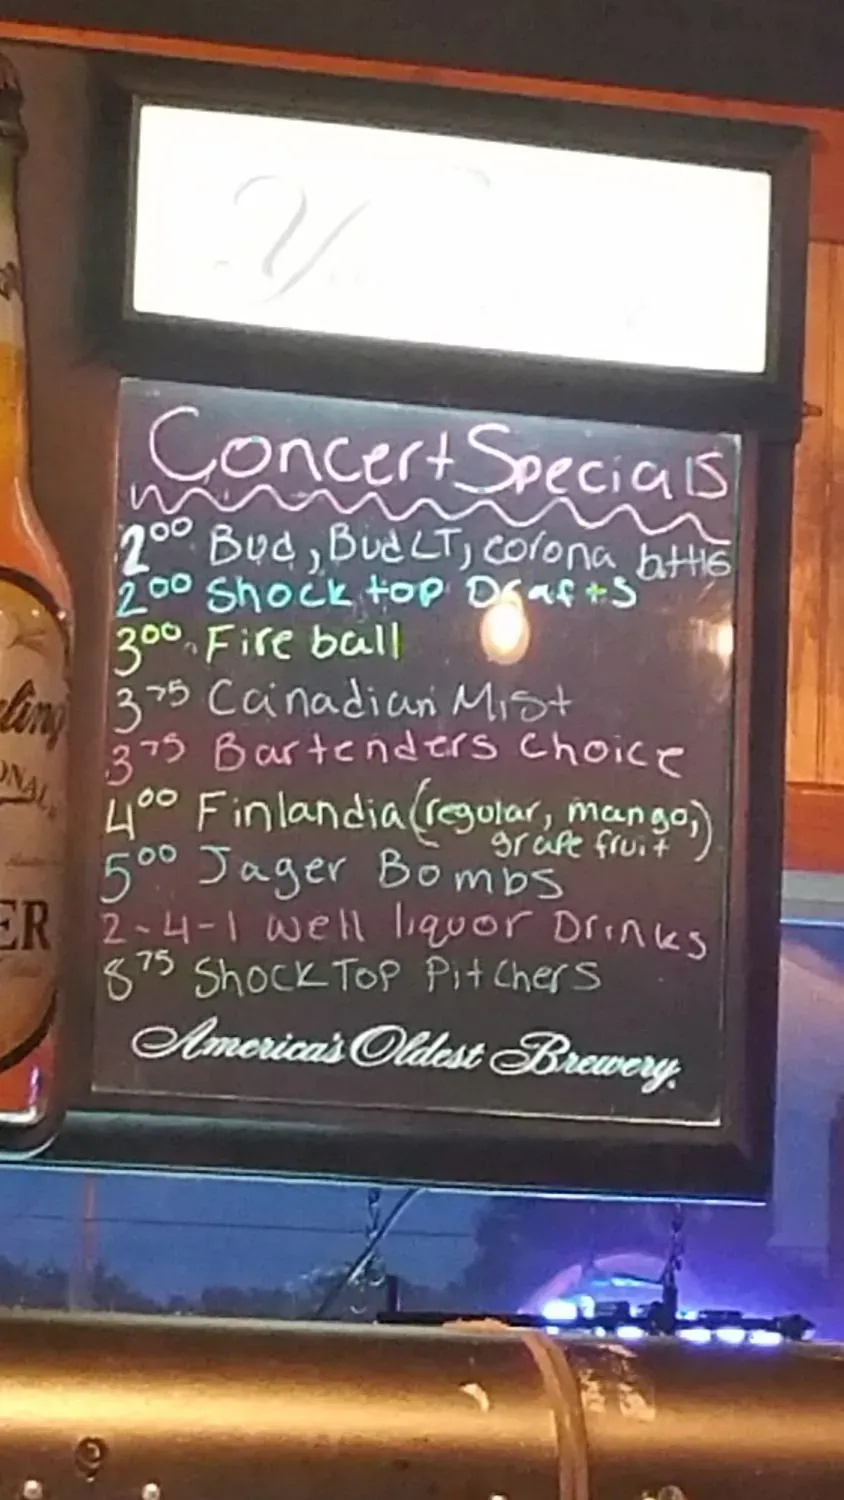 Concert Specials
2⁰⁰ Bud, Bud LT, corona bttls
2⁰⁰ Shock top Drafts
3⁰⁰ Fire ball
3⁷⁵ Canadian Mist
3⁷⁵ Bartenders choice
4⁰⁰ Finlandia (regular, mango,
grape fruit)
5⁰⁰ Jager Bombs
2-4-1 well liquor Drinks
8⁷⁵ Shock Top Pitchers
America's Oldest Brewery.